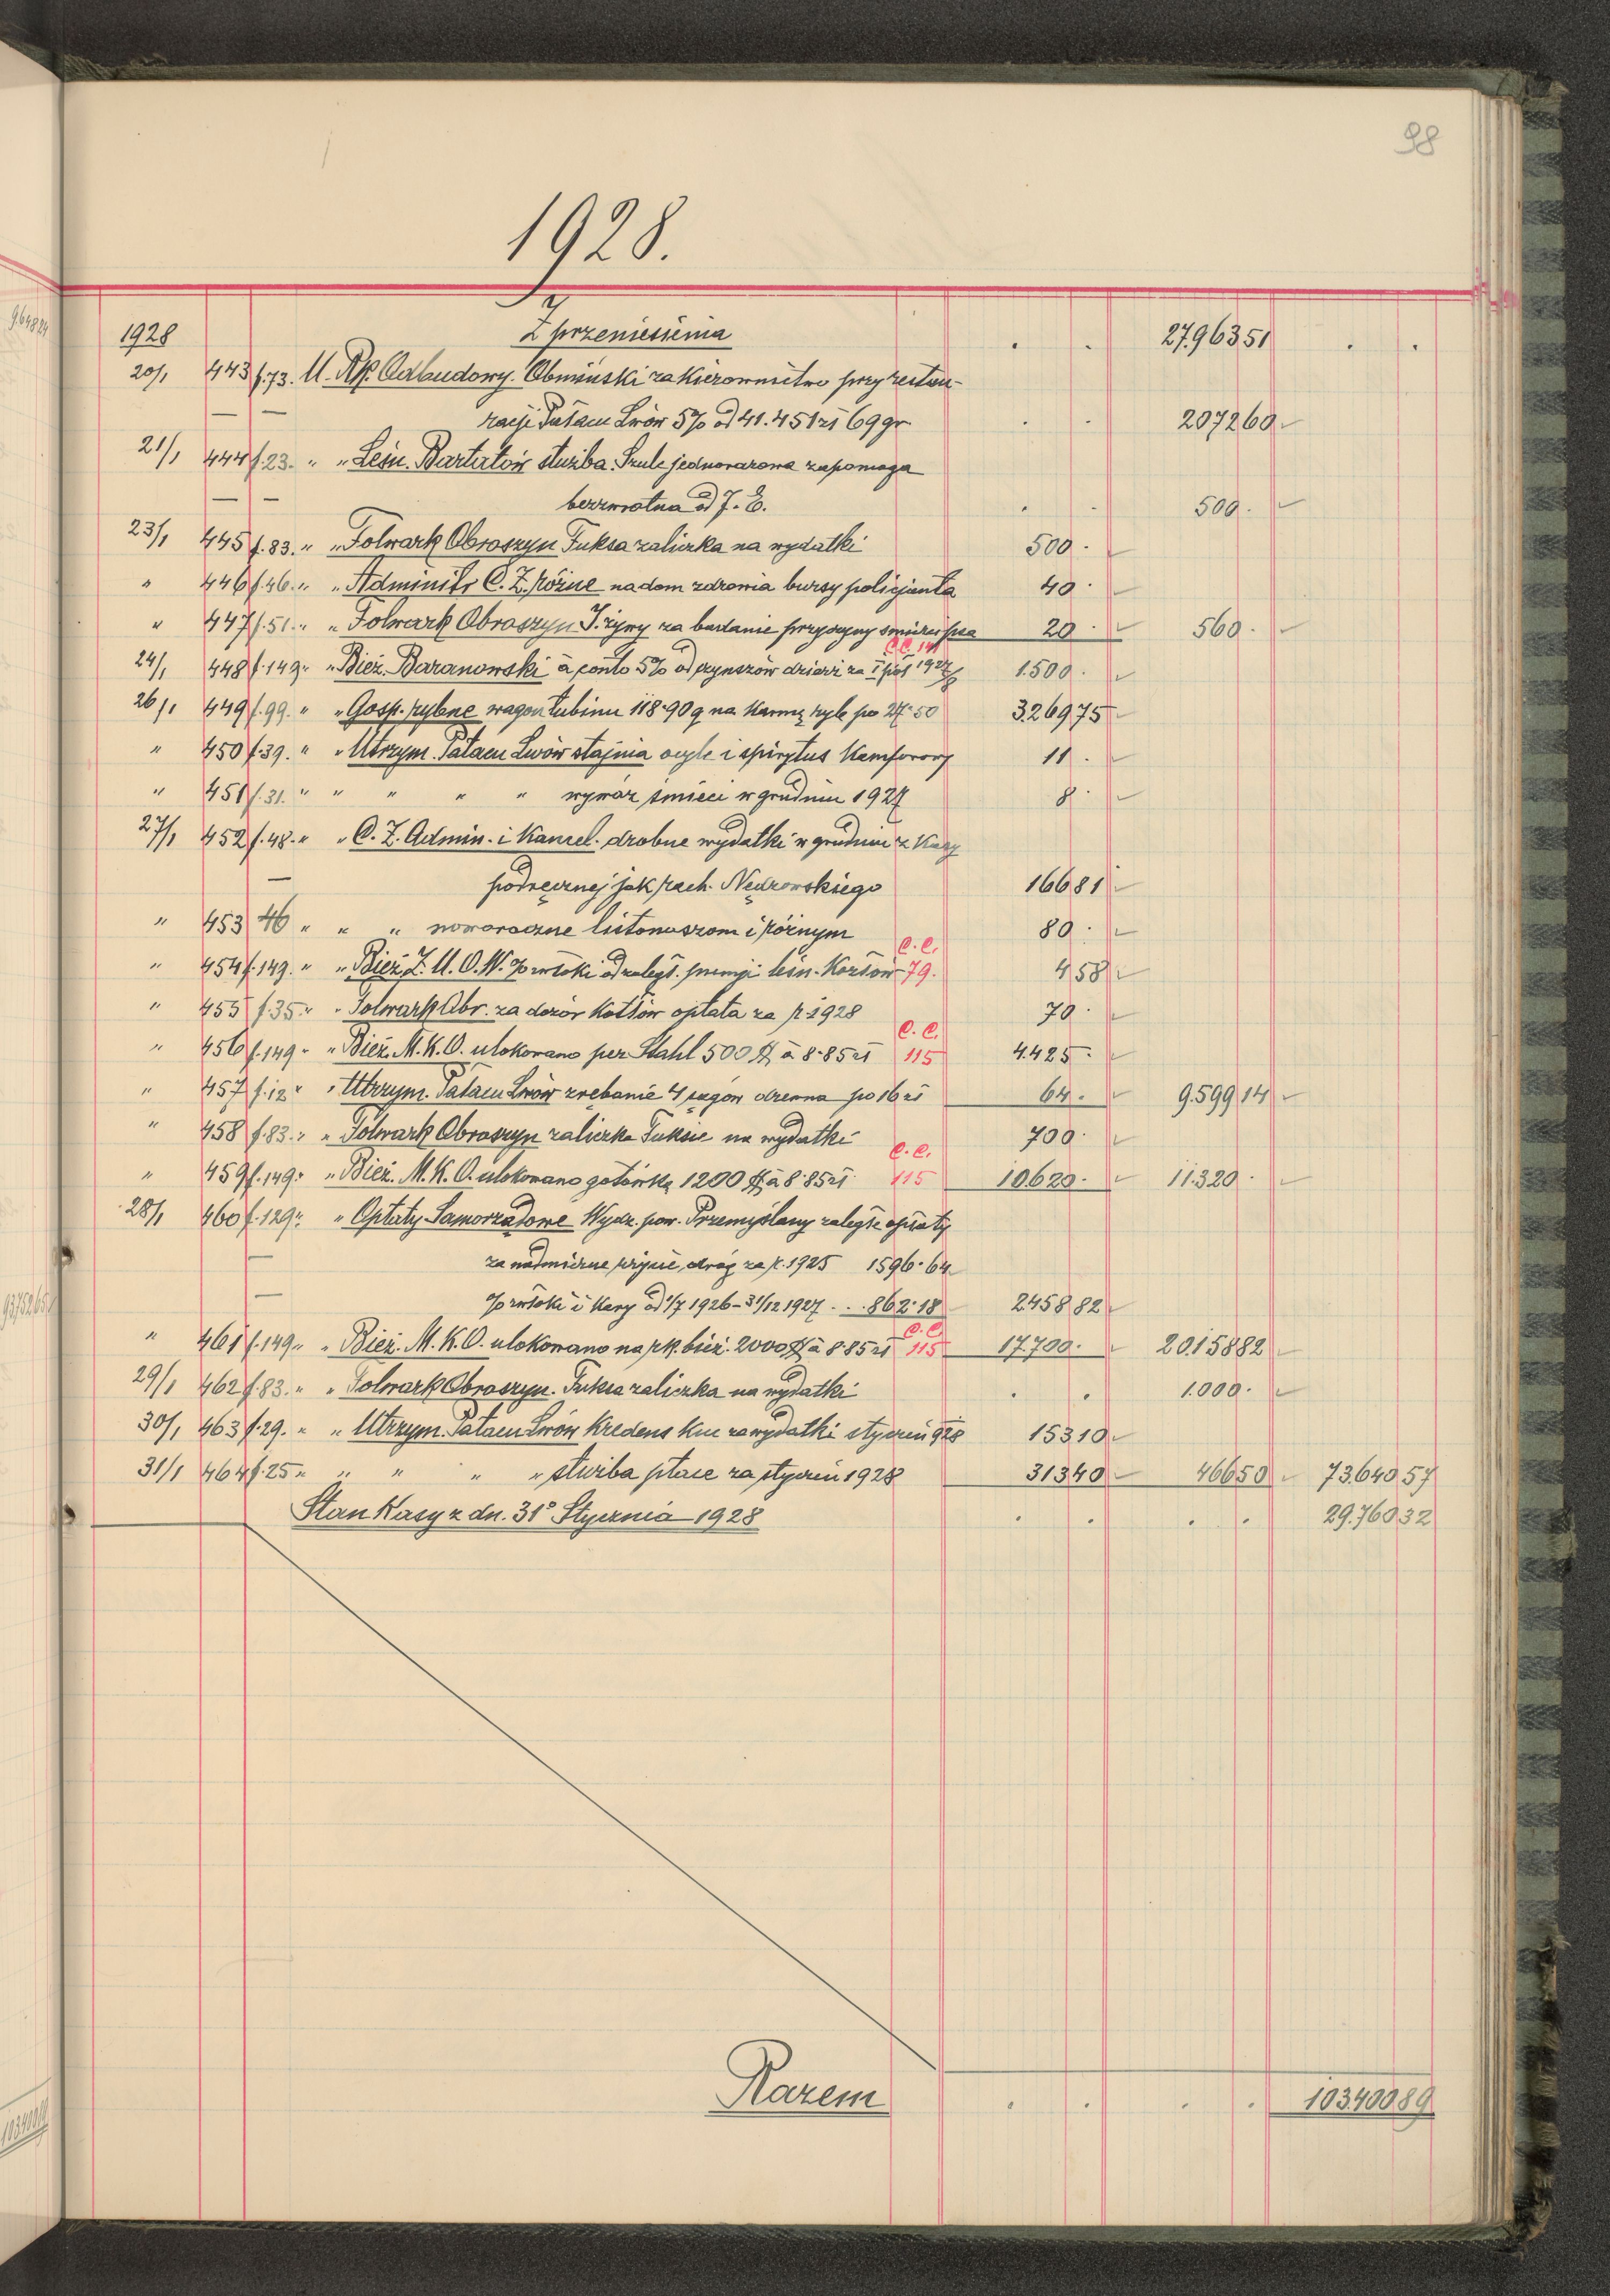 98
1928.
1928 Z przeniesienia . . 27.963 51 . .
20/1 443 f.73. U. Rk. Odbudowy. Obmiński za kierownictwo przy restau-
— — racji Pałacu Lwów 5% od 41.451 zł 69 gr . . 2072 60
21/1 444 f.23. " " Leśn. Bartatów służba. Szulc jednorazowa zapomoga
— — bezzwrotna od J. E. . . 500 .
23/1 445 f.83. " " Folwark Obroszyn Fuksa zaliczka na wydatki 500 .
" 446 f.46. " " Administr C. Z. różne na dom zdrowia bursy policjanta 40 .
" 447 f.51. " " Folwark Obroszyn I. żywy za badanie przyczyny śmierci psa 20 . 560 .
C.C. 141
24/1 448 f.149. " Bież. Baranowski à conto 5% od czynszów dzierż za I pół 1927/8 1.500 .
26/1 449 f.99. " " Gosp. rybne wagon łubinu 118.90 q na karmę ryb po 27.50 3.269 75
" 450 f.39. " " Utrzym. Pałacu Lwów stajnia owies i spirytus kamforowy 11 .
" 451 f.31. " " " " " wywóz śmieci w grudniu 1927 8 .
27/1 452 f.48. " " C. Z. Admin. i Kancel. drobne wydatki w grudniu z Kasy
— podręcznej jak rach. Nędzowskiego 166 81
" 453 46 " " " noworoczne listonoszom i różnym 80 .
C. C.
" 454 f.149. " " Bież. Z. U. O. W. % zwłoki od zaległ. premji leśn. Korzow 79. 4 58
" 455 f.35. " " Folwark Obr. za dozór kotłów opłata za r. 1928 70 .
C. C.
" 456 f.149. " " Bież. M. K. O. ulokowano per Stahl 500 $ à 8.85 zł 115 4.425 .
" 457 f.12 " " Utrzym. Pałacu Lwów zrębanie 4 sągów drzewa po 16 zł 64 . 9.599 14
" 458 f.83. " " Folwark Obroszyn zaliczka Fuksie na wydatki 700 .
C. C.
" 459 f.149. " " Bież. M. K. O. ulokowano gotówką 1200 $ à 8.85 zł 115 10.620 . 11.320 .
28/1 460 f.129. " " Opłaty Samorządowe Wydz. pow. Przemyślany zaległe opłaty
— za nadmierne zużycie dróg za r. 1925 1596.64
— % zwłoki i kary od 1/7 1926 – 31/12 1927 . . . 862.18 2458 82
C. C.
" 461 f.149. " " Bież. M. K. O. ulokowano na rk. bież. 2000 $ à 8.85 zł 115 17.700 . 20.158 82
29/1 462 f.83. " " Folwark Obroszyn. Fuksa zaliczka na wydatki . . 1.000 .
30/1 463 f.29. " " Utrzym. Pałacu Lwów Kredens Kuc za wydatki styczeń 928 153 10
31/1 464 f.25 " " " " " służba płace za styczeń 1928 313 40 466 50 73.640 57
Stan Kasy z dn. 31º Stycznia 1928 . . . . 29.760 32
Razem . . . . 103.400 89